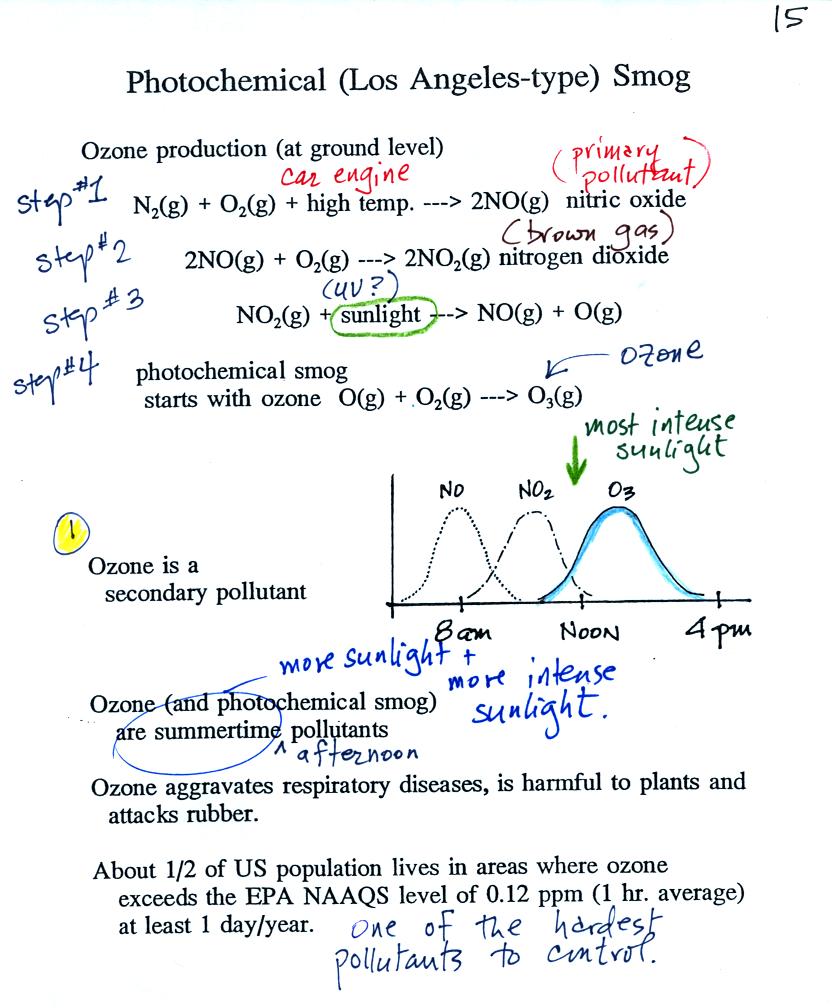 15
Photochemical (Los Angeles-type) Smog
Ozone production (at ground level)
(primary
pollutant)
car engine
step #1
N₂(g) + O₂(g) + high temp. ---> 2NO(g) nitric oxide
(brown gas)
step #2
2NO(g) + O₂(g) ---> 2NO₂(g) nitrogen dioxide
(UV?)
step #3
NO₂(g) + sunlight ---> NO(g) + O(g)
step #4
photochemical smog
ozone
starts with ozone O(g) + O₂(g) ---> O₃(g)
most intense
sunlight
NO NO₂ O₃
1
Ozone is a
secondary pollutant
8am NOON 4pm
more sunlight +
more intense
sunlight.
Ozone (and photochemical smog)
are summertime ^ pollutants
afternoon
Ozone aggravates respiratory diseases, is harmful to plants and
attacks rubber.
About 1/2 of US population lives in areas where ozone
exceeds the EPA NAAQS level of 0.12 ppm (1 hr. average)
at least 1 day/year.
one of the hardest
pollutants to control.